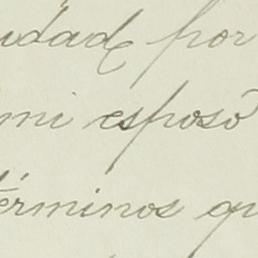 udad por
mi esposo
términos qu